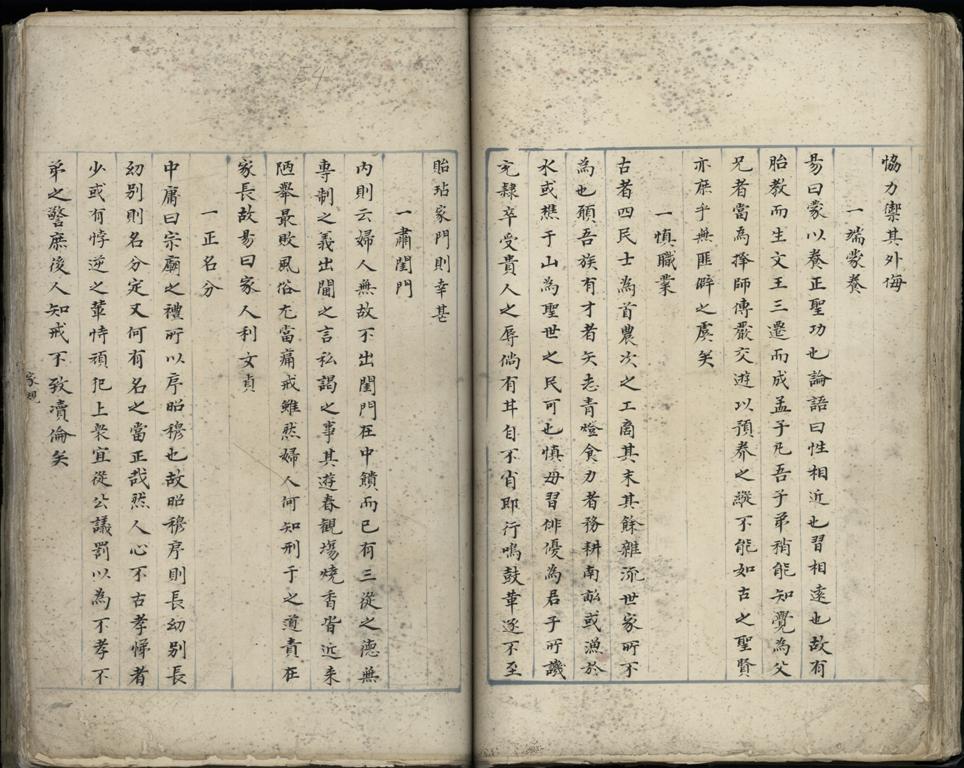 協力禦其外侮
一端蒙養
易曰蒙以養正聖功也論語曰性相近也習相遠也故有
胎教而生文王三遷而成孟子凡吾子弟稍能知覺為父
兄者當為擇師傅嚴交遊以預養之縱不能如古之聖賢
亦庶乎無匪僻之虞矣
一慎職業
古者四民士為首農次之工商其末其餘雜流世家所不
為也願吾族有才者矢志青燈食力者務耕南畝或漁於
水或樵于山為聖世之民可也慎毋習俳優為君子所譏
充隸卒受貴人之辱倘有其自不肖即行鳴鼓葷逐不至
貽玷家門則幸甚
一肅閨門
內則云婦人無故不出閨門在中饋而已有三從之德無
專制之義出閫之言私謁之事其遊春觀塲燒香皆近来
陋舉最敗風俗尤當痛戒雖然婦人何知刑于之道責在
家長故易曰家人利女貞
一正名分
中庸曰宗廟之禮所以序昭穆也故昭穆序則長幼別長
幼別則名分定又何有名之當正哉然人心不古孝悌者
少或有悖逆之輩恃頑犯上衆宜從公議罰以為不孝不
弟之警庶後人知戒不致凟倫矣
家規
54